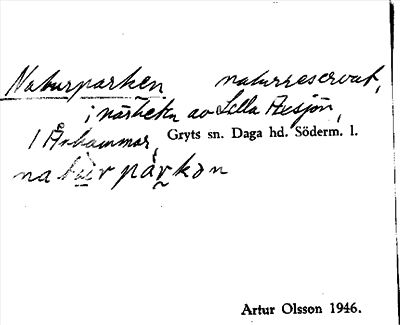 Naturparken naturreservat,
i närheten av Lilla Axsjön,
1 Århammar, Gryts sn. Daga hd. Söderm. l.
naturpárkən
Artur Olsson 1946.